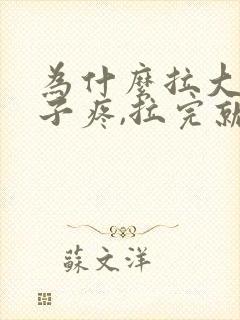 為什麼拉大
子疼,拉完就
蘇文洋